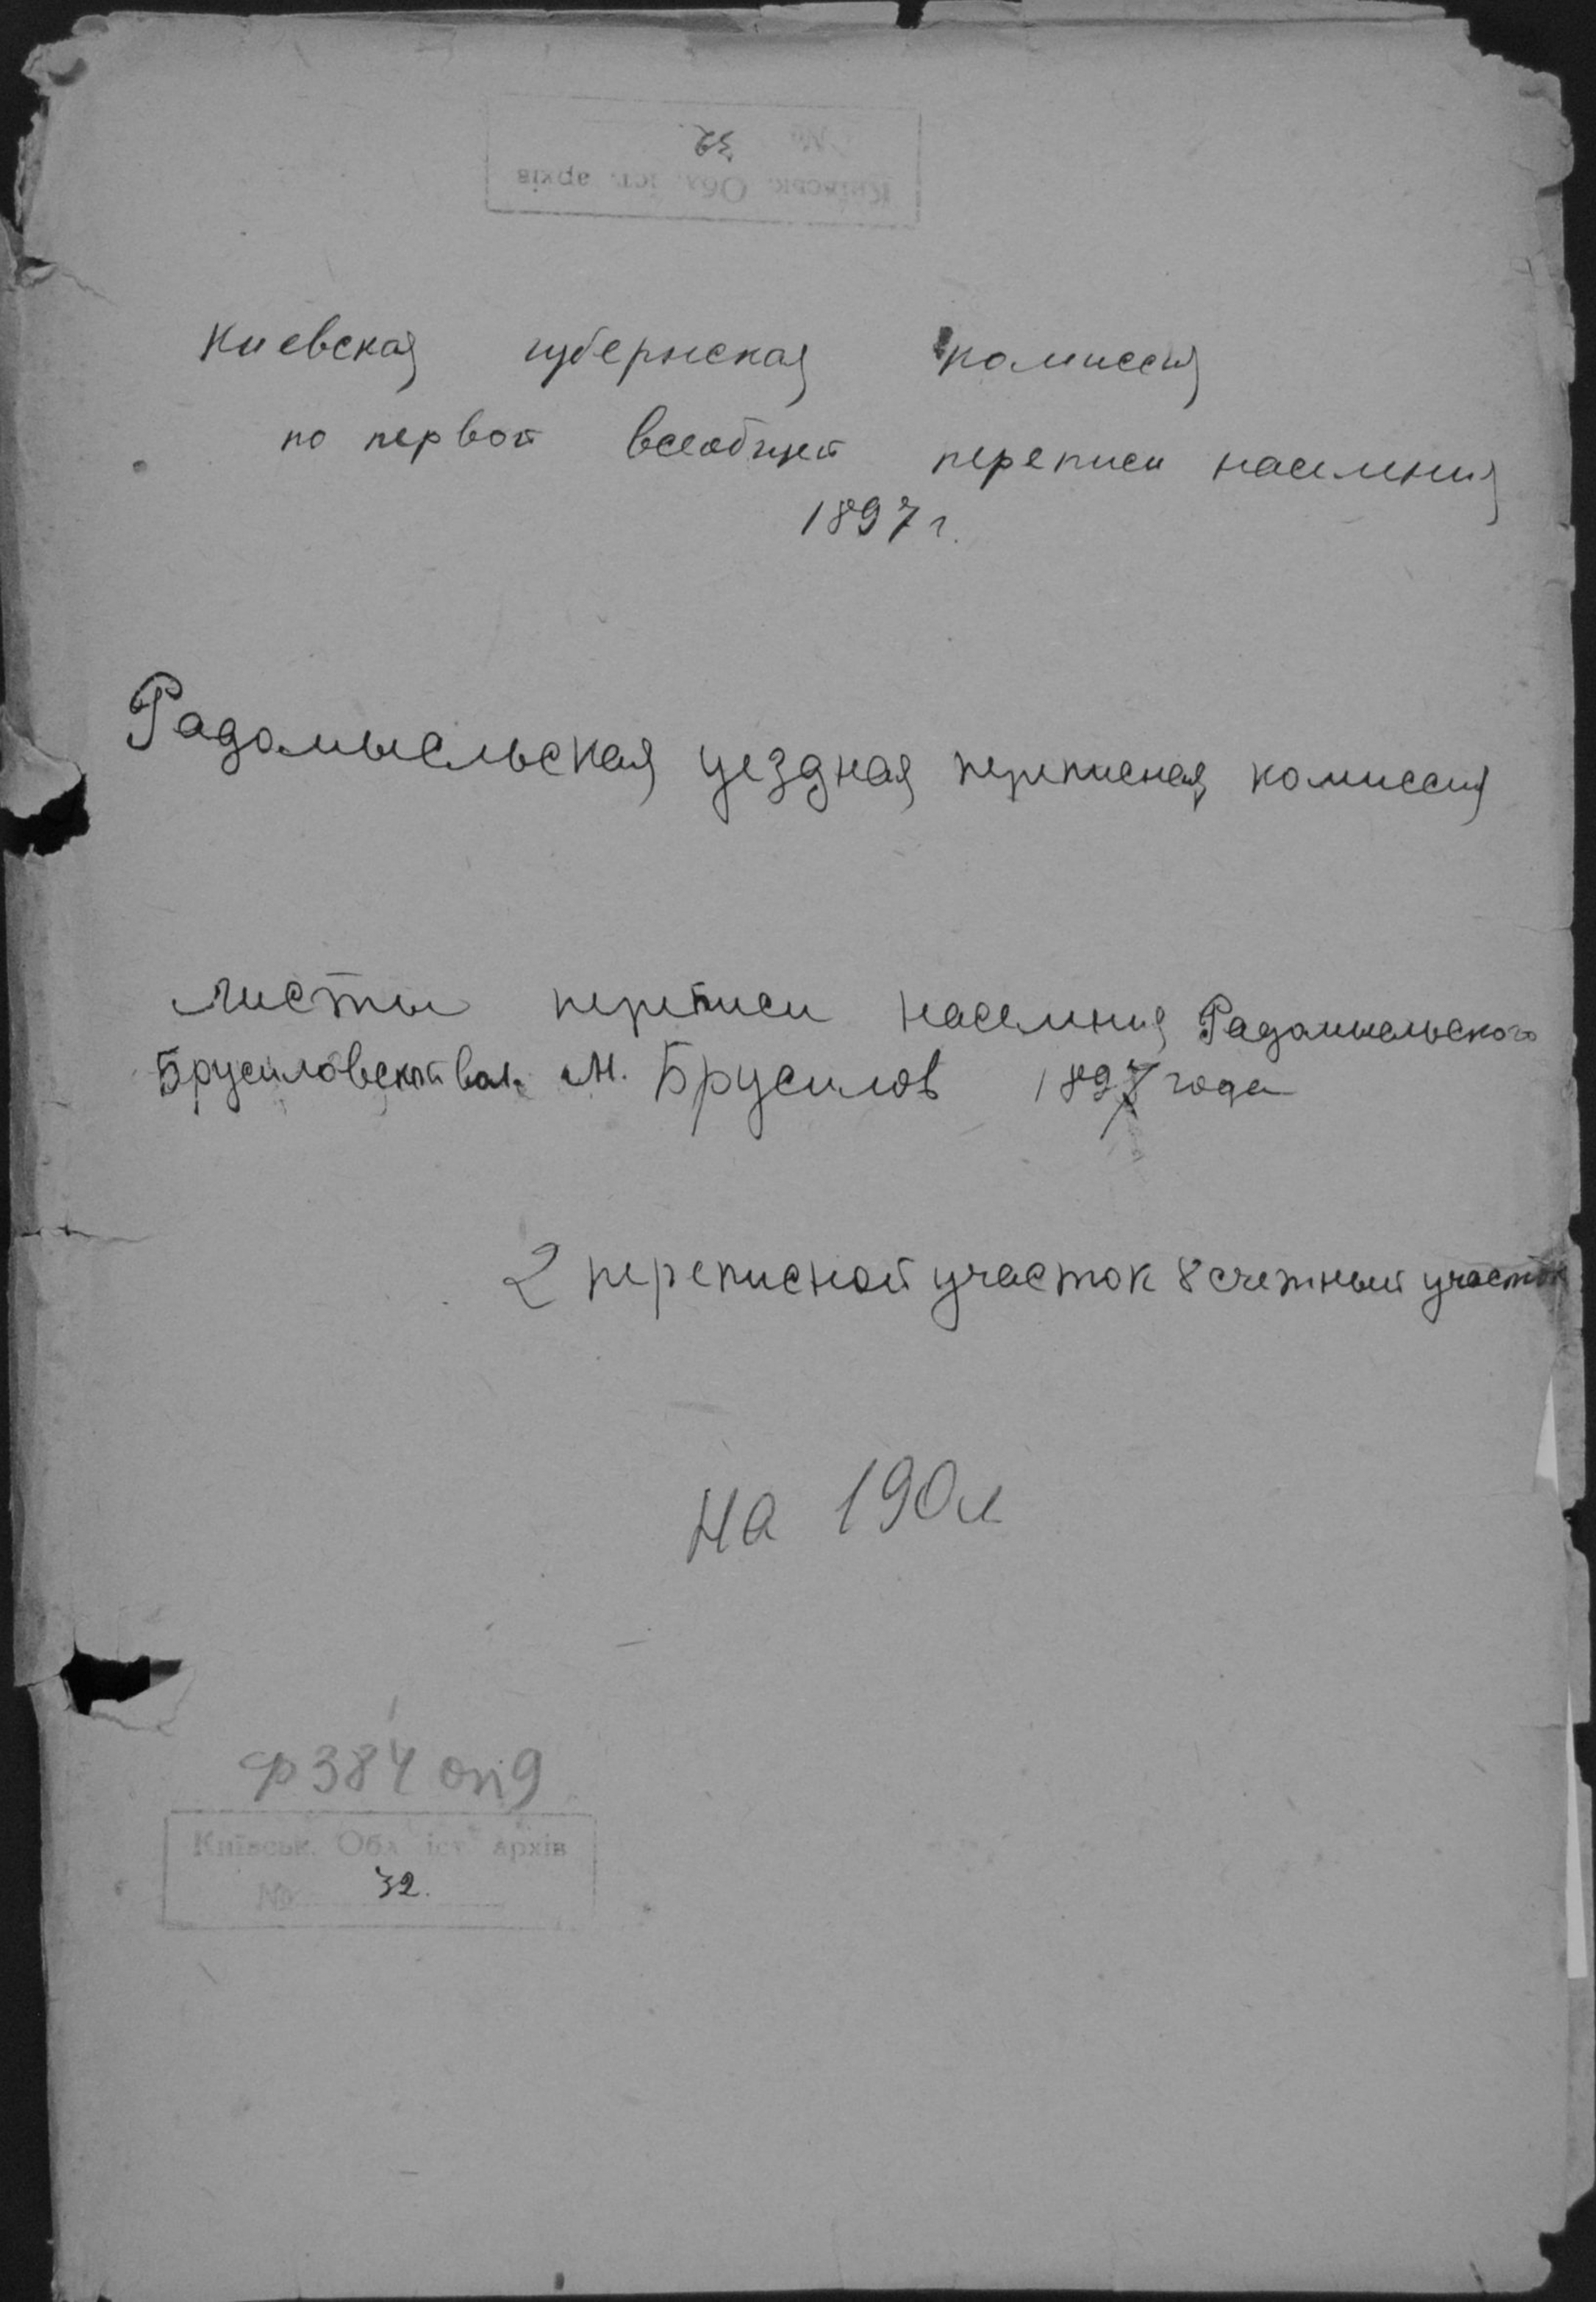 Київськ. Обл. іст. архів
№ 32.
Киевская губернская комиссия
по первой всеобщей переписи населения
1897 г.
Радомысльская уездная переписная комиссия
Листы переписи населения Радомысльского
Брусиловской вол. м. Брусилов 1897 года
2 переписной участок 8 счетный участок
на 190 л
ф 384 оп 9
Київськ. Обл іст. архів
№ 32.